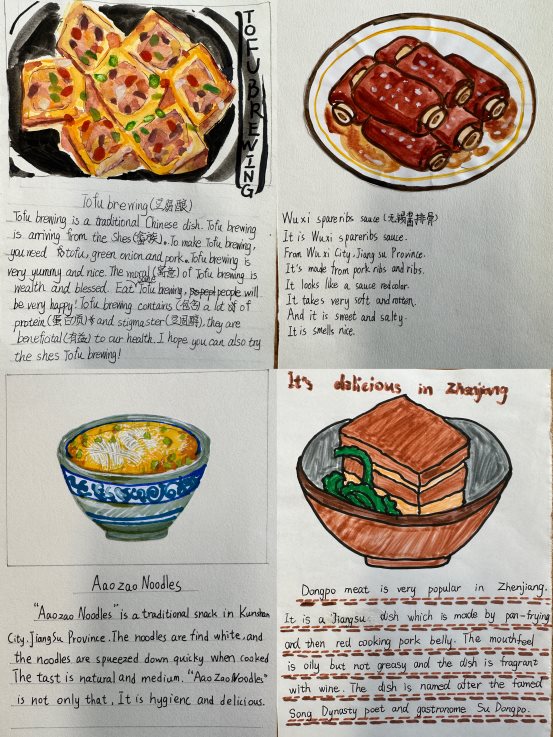 TOFU BREWING
Tofu brewing (豆腐酿)
Tofu brewing is a traditional Chinese dish. Tofu brewing
is arriving from the Shes (畲族). To make Tofu brewing,
you need tofu, green onion and pork. Tofu brewing is
very yummy and nice. The moral (寓意) of Tofu brewing is
wealth and blessed. Eat some Tofu brewing, people will
be very happy! Tofu brewing contains (包含) a lot of
protein (蛋白质) and stigmaster (豆固醇), they are
beneficial (有益) to our health. I hope you can also try
the shes Tofu brewing!
Wuxi spareribs sauce (无锡酱排骨)
It is Wuxi spareribs sauce.
From Wuxi City, Jiang su Province.
It's made from pork ribs and ribs.
It looks like a sauce red color.
It takes very soft and rotten.
And it is sweet and salty.
It is smells nice.
Aaozao Noodles
"Aaozao Noodles" is a traditional snack in Kunshan
City. JiangSu Province. The noodles are find white. and
the noodles are spueezed down quicky when cooked
The tast is natural and medium. "Aao Zao Noodles"
is not only that, It is hygienc and delicious.
It's delicious in Zhenjiang
Dongpo meat is very popular in Zhenjiang.
It is a Jiangsu dish which is made by pan-frying
and then red cooking pork belly. The mouthfeel
is oily but not greasy and the dish is fragrant
with wine. The dish is named after the famed
Song Dynasty poet and gastronome Su Dongpo.